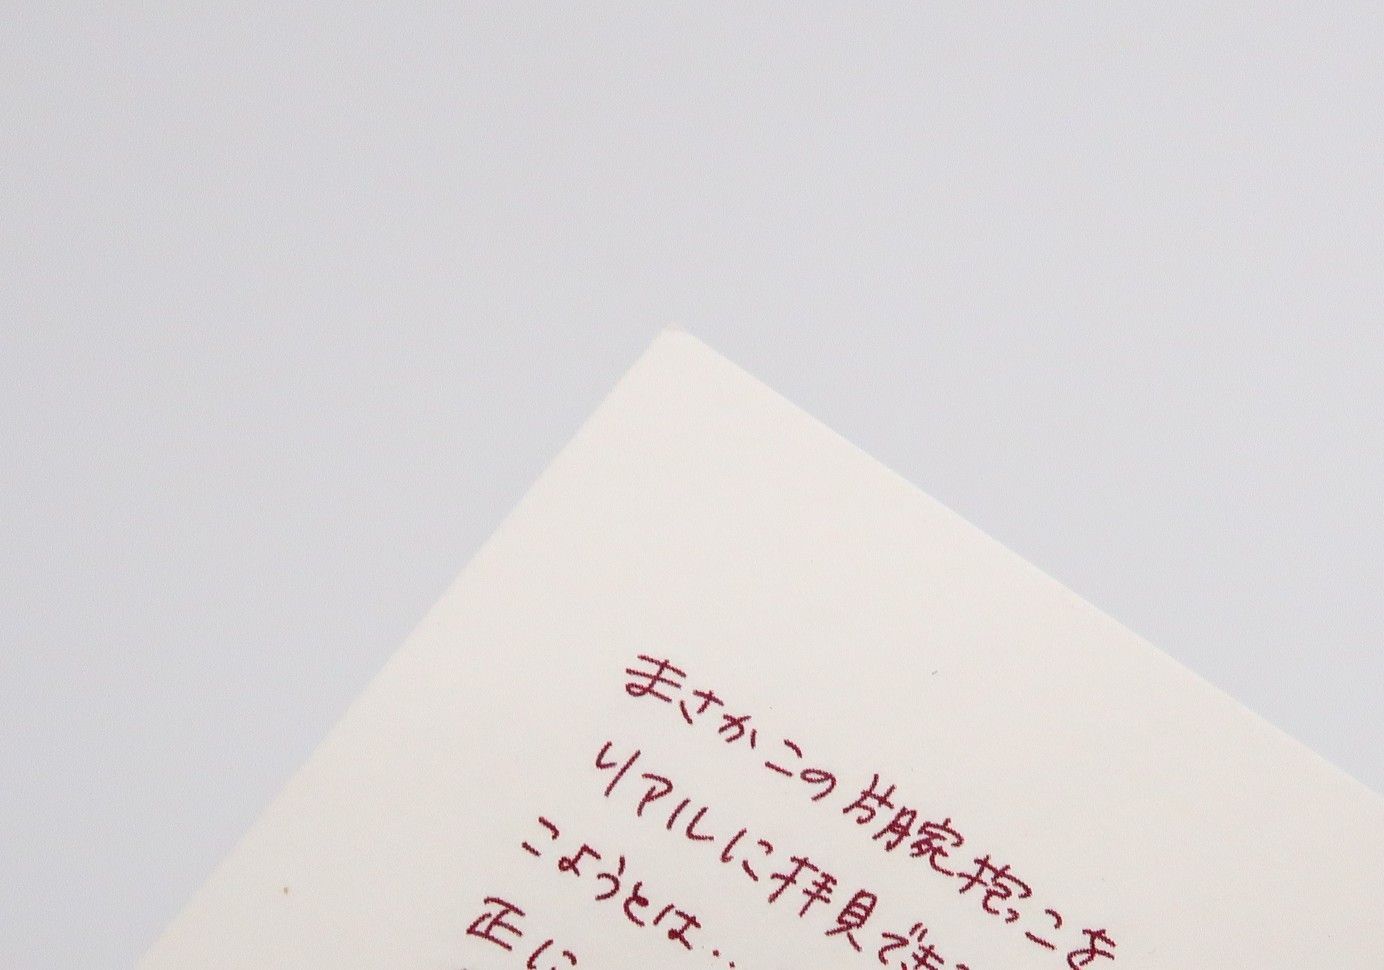 まさかこの片腕抱っこを
リアルに拝見でき
こようとは…
正に